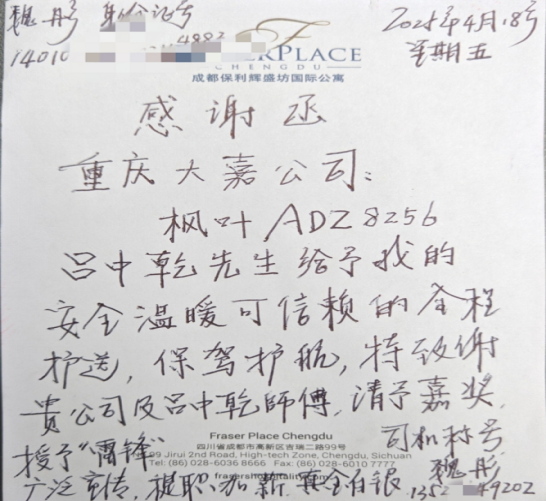 魏彤 身份证号
14010 4882
2025年4月18号
星期五
FRASER PLACE
CHENGDU
成都保利辉盛坊国际公寓
感谢函
重庆大嘉公司:
枫叶ADZ8256
吕中乾先生给予我的
安全温暖可信赖的全程
护送,保驾护航,特致谢
贵公司及吕中乾師傅,请予嘉奖,
Fraser Place Chengdu
四川省成都市高新区吉瑞二路99号
99 Jirui 2nd Road, High-tech Zone, Chengdu, Sichuan
Tel: (86) 028-6036 8666 Fax: (86) 028-6010 7777
frasershospitality.com
司机称号
授予"雷锋"
广泛宣传,提职加薪,真金白银
魏彤
1352 49202